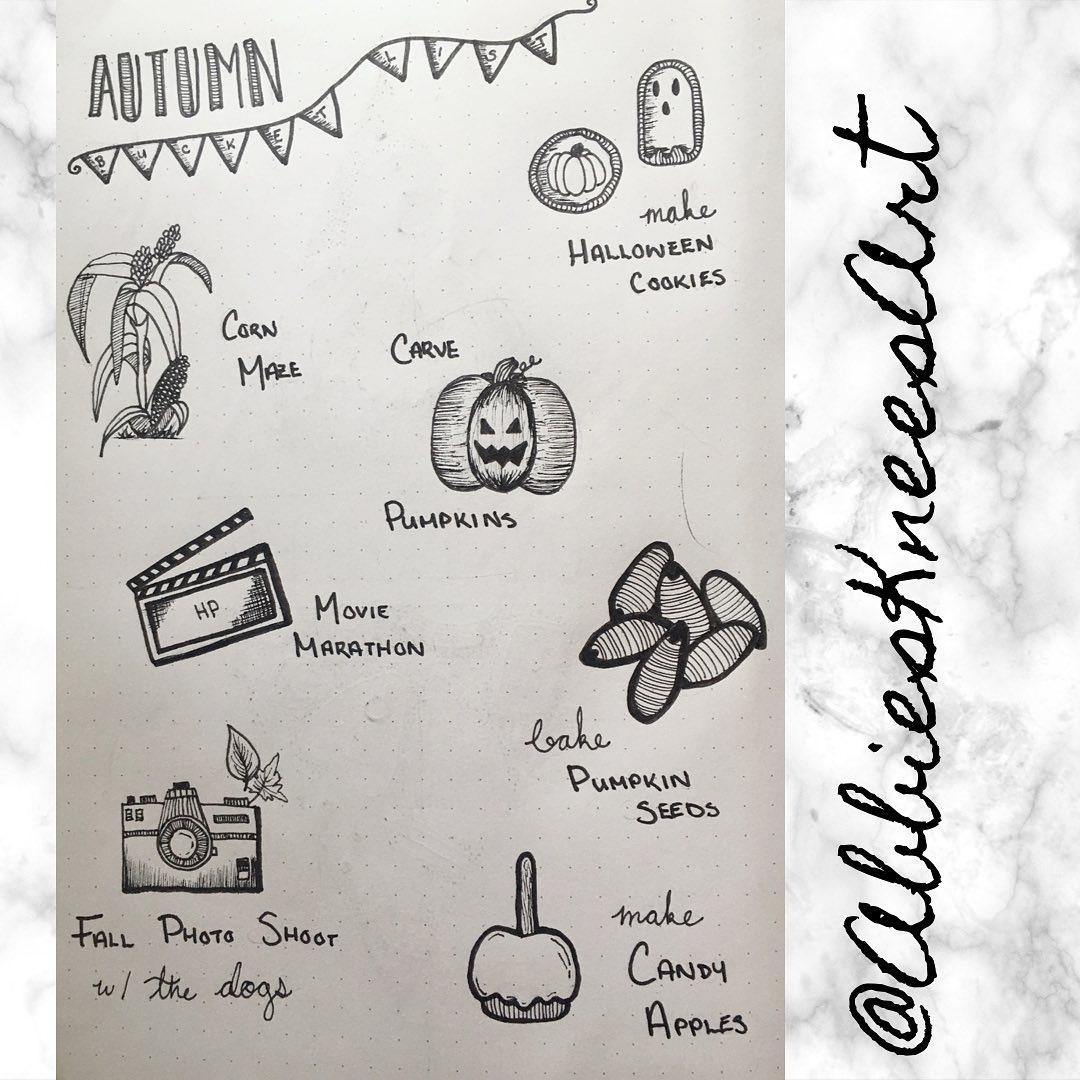 AUTUMN
BUCKET LIST
make
HALLOWEEN
COOKIES
CORN
MAZE
CARVE
PUMPKINS
HP
MOVIE
MARATHON
bake
PUMPKIN
SEEDS
FALL PHOTO SHOOT
w/ the dogs
make
CANDY
APPLES
@AbbiexKneexArt